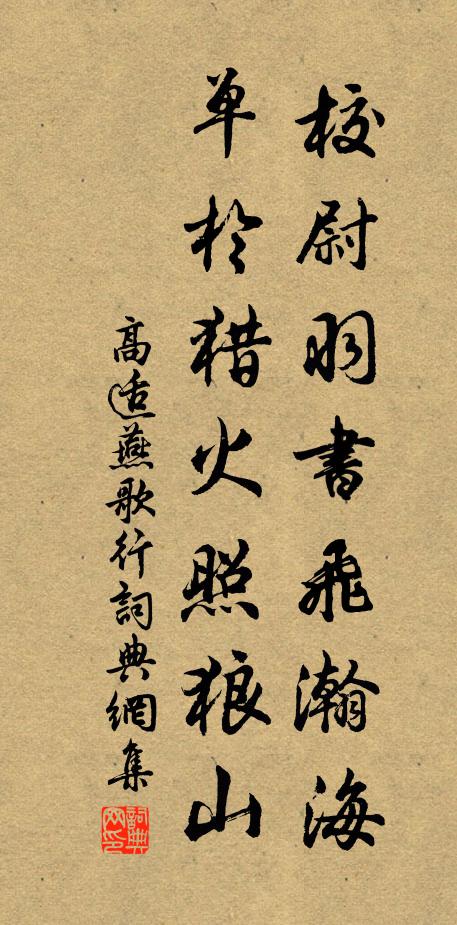 校尉羽書飛瀚海
单於猎火照狼山
高适燕歌行詞典網集
詞典网印